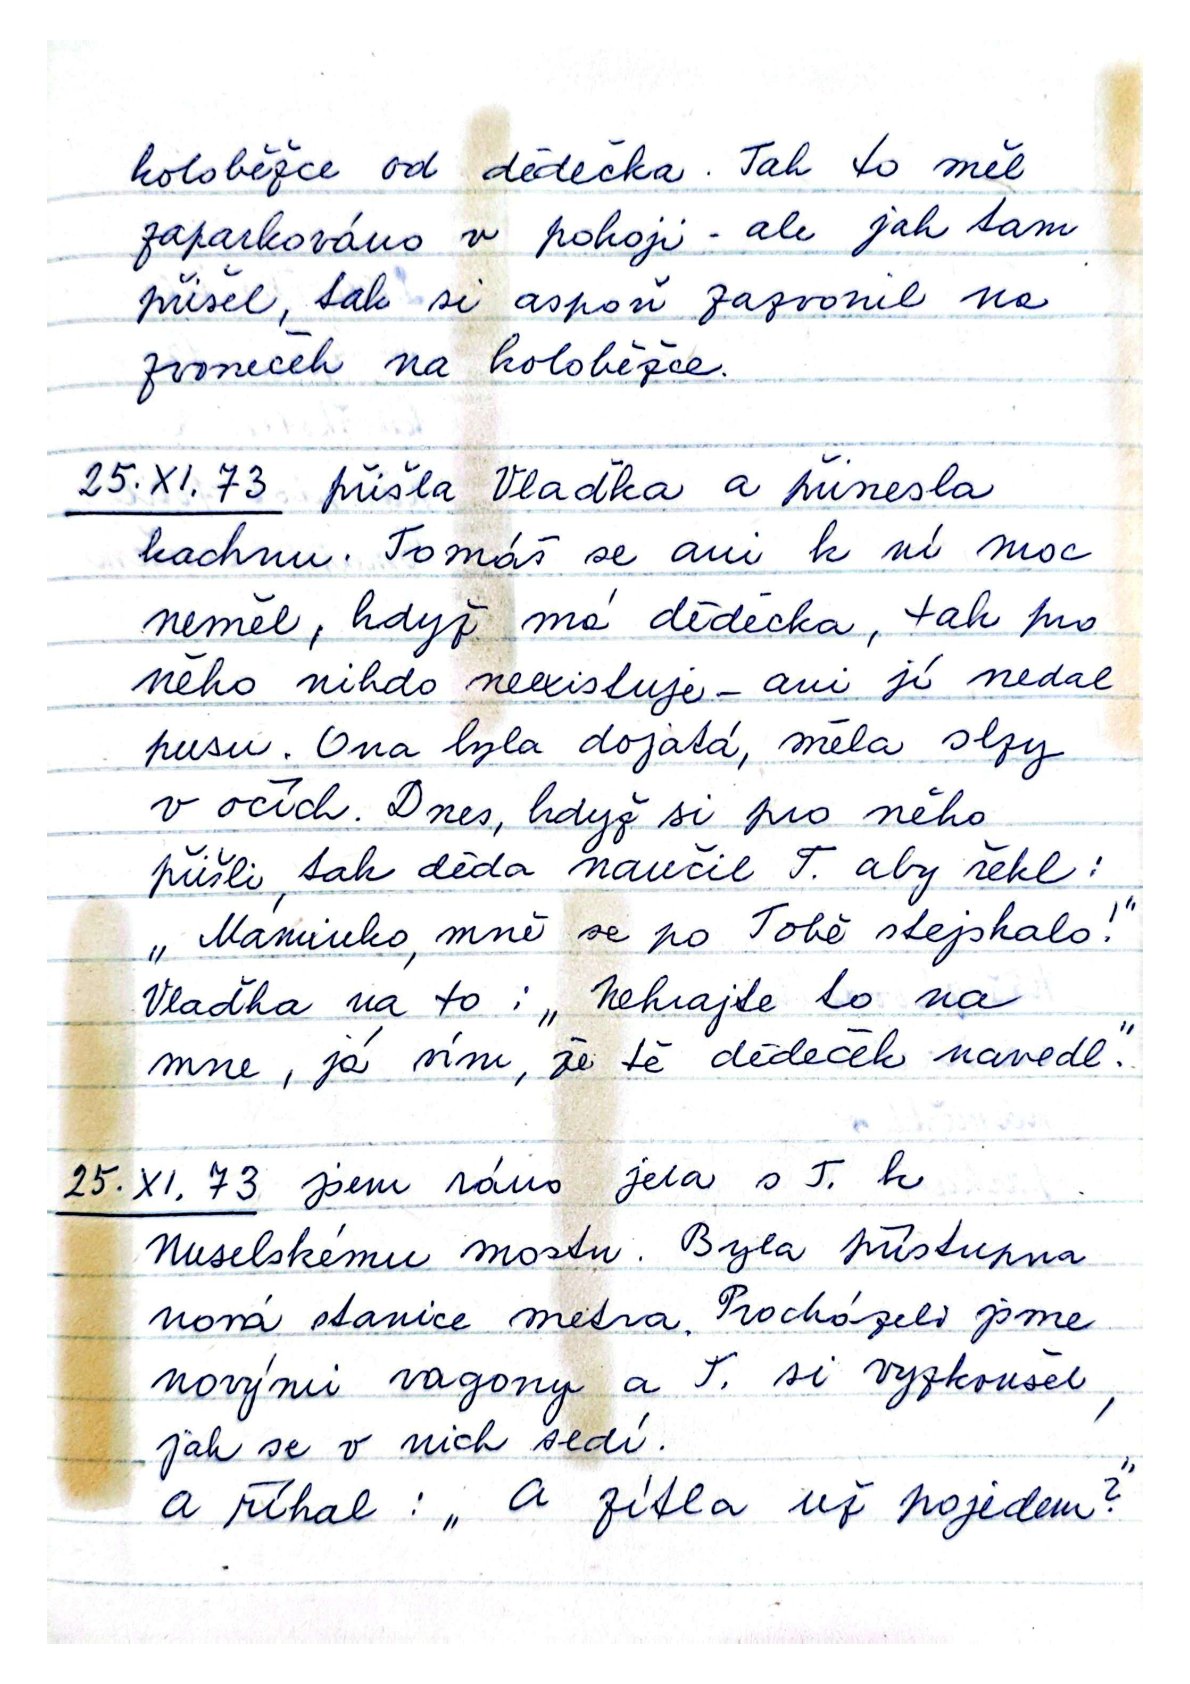 koloběžce od dědečka. Tak to měl
zaparkováno v pokoji - ale jak tam
přišel, tak si aspoň zazvonil na
zvoneček na koloběžce.
25. XI. 73 přišla Vlaďka a přinesla
kachnu. Tomáš se ani k ní moc
neměl, když má dědečka, tak pro
něho nikdo neexistuje - ani jí nedal
pusu. Ona byla dojatá, měla slzy
v očích. Dnes, když si pro něho
přišli, tak děda naučil T. aby řekl:
„Maminko, mně se po Tobě stejskalo!"
Vlaďka na to: „Nehrajte to na
mne, já vím, že tě dědeček navedl."
25. XI. 73 jsem ráno jela s T. k
Nuselskému mostu. Byla přístupna
nová stanice metra. Procházeli jsme
novými vagony a T. si vyzkoušel,
jak se v nich sedí.
A říkal: „A zítla už pojedem?"